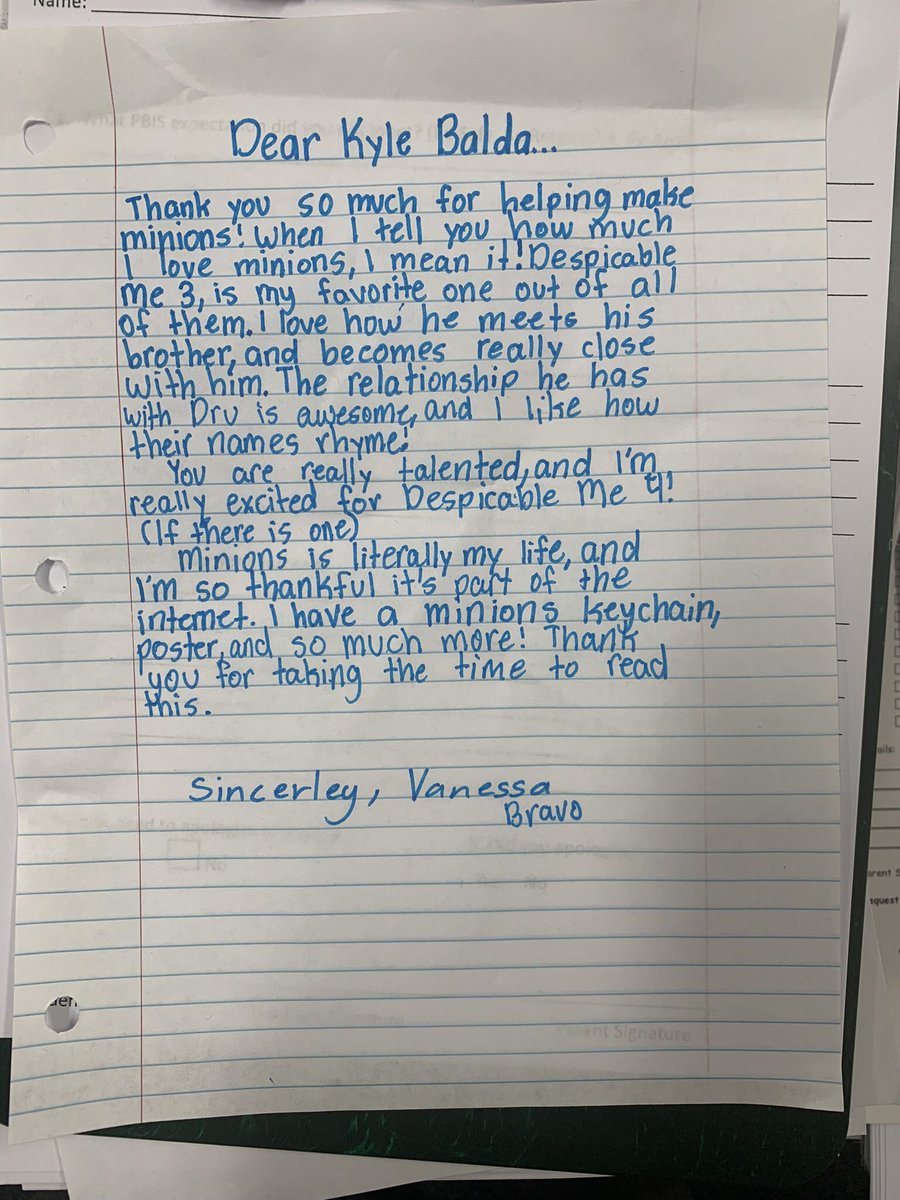 Name:
Dear Kyle Balda...
Thank you so much for helping make
minions! When I tell you how much
I love minions, I mean it! Despicable
Me 3, is my favorite one out of all
of them. I love how he meets his
brother, and becomes really close
with him. The relationship he has
with Dru is awesome, and I like how
their names rhyme!
You are really talented, and I'm
really excited for Despicable Me 4!
(If there is one)
minions is literally my life, and
I'm so thankful it's part of the
internet. I have a minions keychain,
poster, and so much more! Thank
you for taking the time to read
this.
Sincerley, Vanessa
Bravo
No
Signature